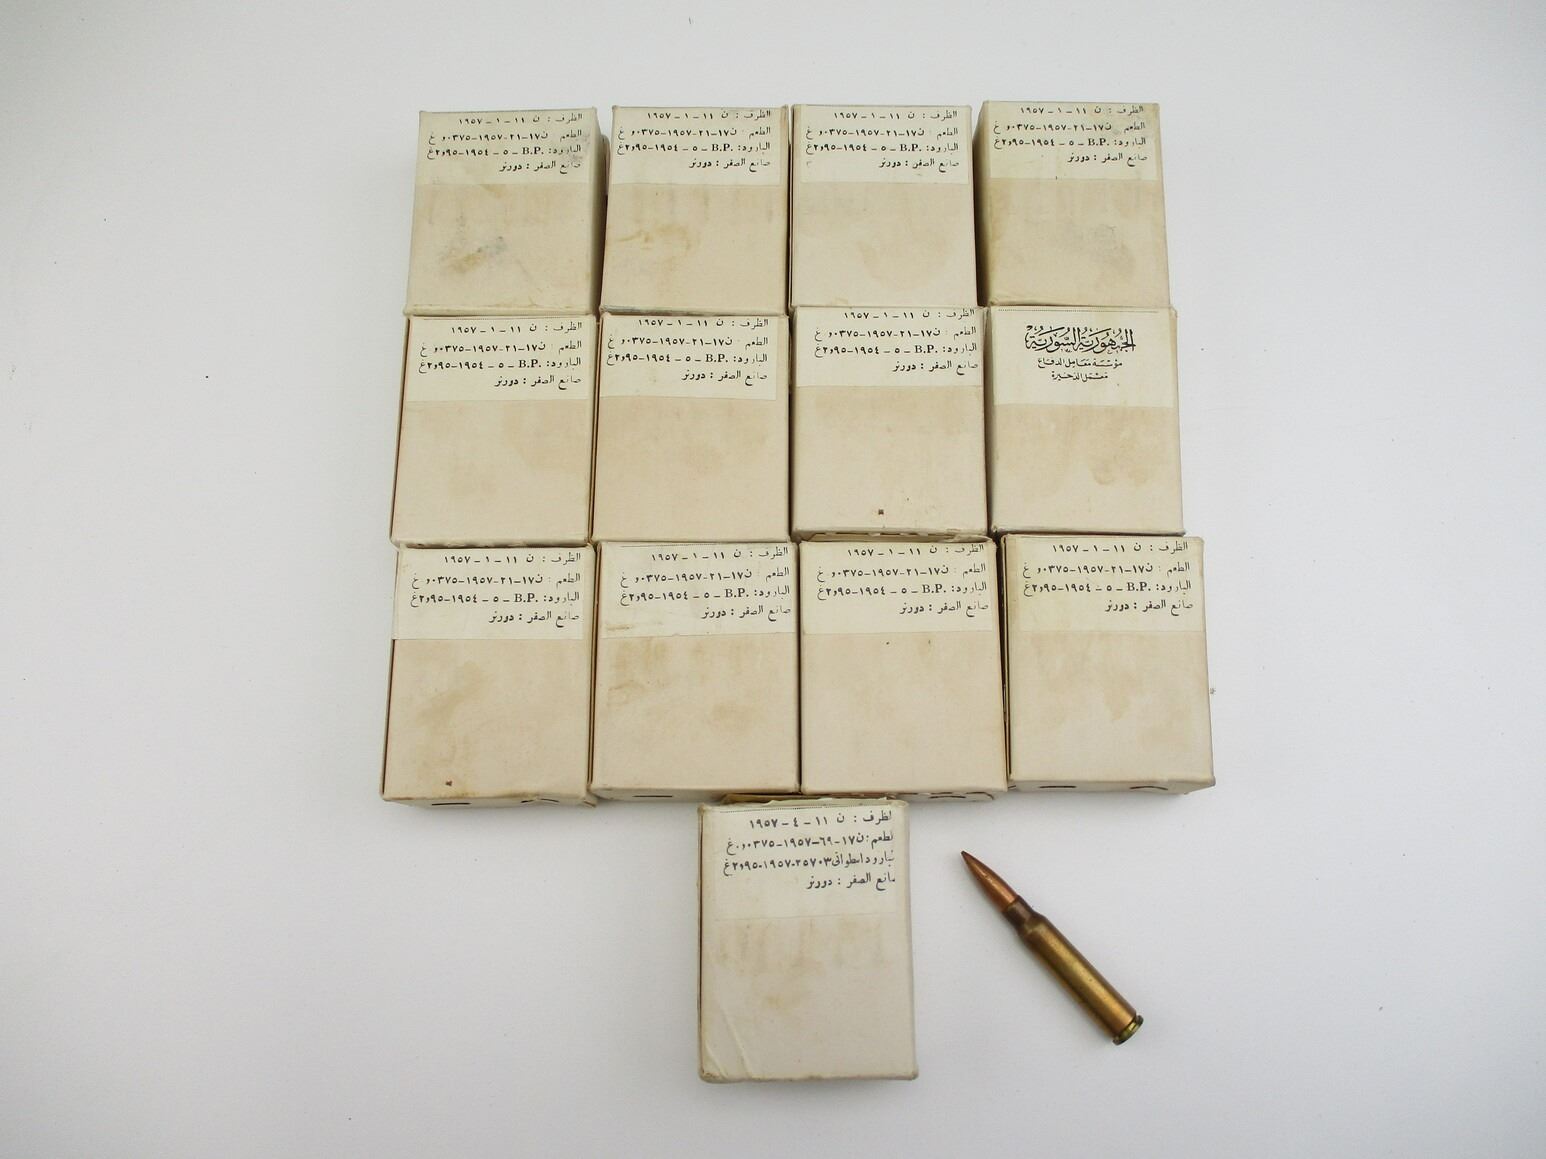 الظرف : ن ١١ - ١ - ١٩٥٧
الطعم : ن١٧-٢١-١٩٥٧-٠٣٧٥و غ
البارود: B.P. - ٥ - ١٩٥٤-٢و٩٥غ
صانع الصفر : دورنر
الظرف : ن ١١ - ١ - ١٩٥٧
الطعم : ن١٧-٢١-١٩٥٧-٠٣٧٥و غ
البارود: B.P. - ٥ - ١٩٥٤-٢و٩٥غ
صانع الصفر : دورنر
الظرف : ن ١١ - ١ - ١٩٥٧
الطعم : ن١٧-٢١-١٩٥٧-٠٣٧٥و غ
البارود: B.P. - ٥ - ١٩٥٤-٢و٩٥غ
صانع الصفر : دورنر
الظرف : ن ١١ - ١ - ١٩٥٧
الطعم : ن١٧-٢١-١٩٥٧-٠٣٧٥و غ
البارود: B.P. - ٥ - ١٩٥٤-٢و٩٥غ
صانع الصفر : دورنر
الجمهورية السورية
مؤسسة معامل الدفاع
معمل الذخيرة
الظرف : ن ١١ - ١ - ١٩٥٧
الطعم : ن١٧-٢١-١٩٥٧-٠٣٧٥و غ
البارود: B.P. - ٥ - ١٩٥٤-٢و٩٥غ
صانع الصفر : دورنر
الظرف : ن ١١ - ١ - ١٩٥٧
الطعم : ن١٧-٢١-١٩٥٧-٠٣٧٥و غ
البارود: B.P. - ٥ - ١٩٥٤-٢و٩٥غ
صانع الصفر : دورنر
الظرف : ن ١١ - ١ - ١٩٥٧
الطعم : ن١٧-٢١-١٩٥٧-٠٣٧٥و غ
البارود: B.P. - ٥ - ١٩٥٤-٢و٩٥غ
صانع الصفر : دورنر
الظرف : ن ١١ - ١ - ١٩٥٧
الطعم : ن١٧-٢١-١٩٥٧-٠٣٧٥و غ
البارود: B.P. - ٥ - ١٩٥٤-٢و٩٥غ
صانع الصفر : دورنر
الظرف : ن ١١ - ١ - ١٩٥٧
الطعم : ن١٧-٢١-١٩٥٧-٠٣٧٥و غ
البارود: B.P. - ٥ - ١٩٥٤-٢و٩٥غ
صانع الصفر : دورنر
الظرف : ن ١١ - ١ - ١٩٥٧
الطعم : ن١٧-٢١-١٩٥٧-٠٣٧٥و غ
البارود: B.P. - ٥ - ١٩٥٤-٢و٩٥غ
صانع الصفر : دورنر
الظرف : ن ١١ - ١ - ١٩٥٧
الطعم : ن١٧-٢١-١٩٥٧-٠٣٧٥و غ
البارود: B.P. - ٥ - ١٩٥٤-٢و٩٥غ
صانع الصفر : دورنر
لظرف : ن ١١ - ٤ - ١٩٥٧
لطعم : ن١٧-٦٩-١٩٥٧-٠٣٧٥و.غ
بارود اسطواني ٢٥٧٠٣-١٩٥٧-٢و٩٥غ
صانع الصفر : دورنر